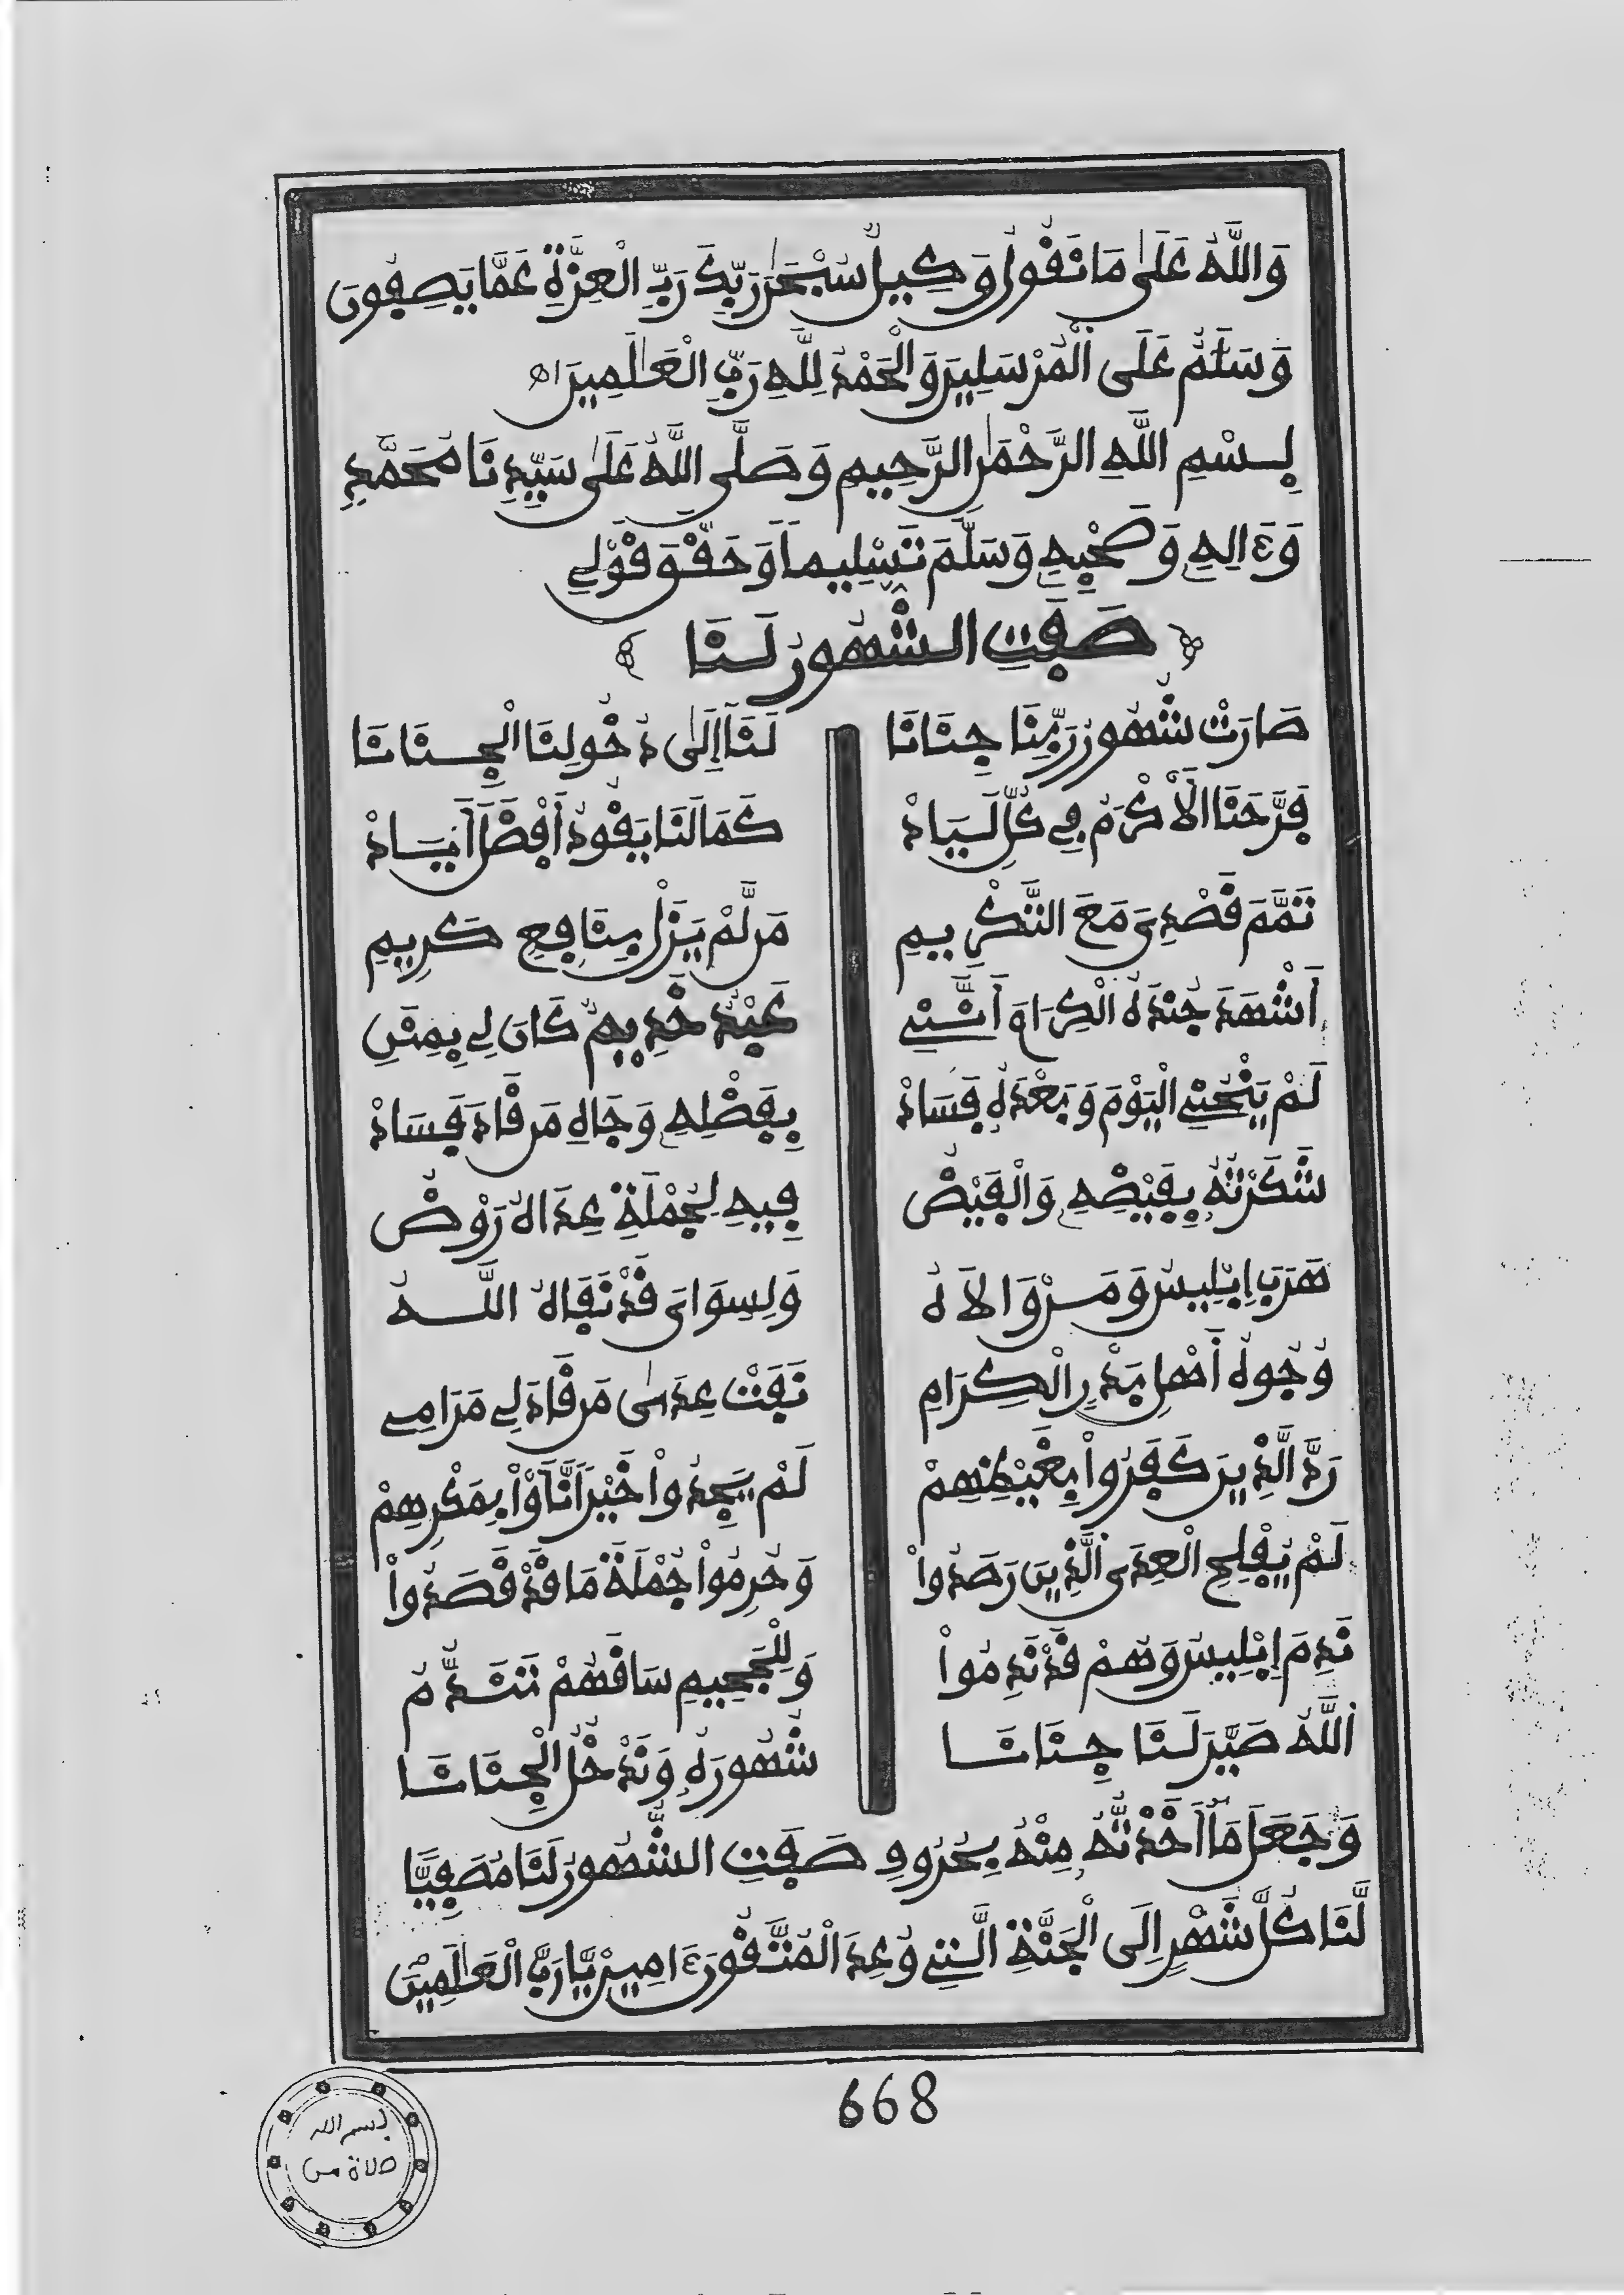 وَاللَّهُ عَلَىٰ مَا نَقُولُ وَكِيلٌ سُبْحَٰنَ رَبِّكَ رَبِّ الْعِزَّةِ عَمَّا يَصِفُونَ
وَسَلَٰمٌ عَلَى الْمُرْسَلِينَ وَالْحَمْدُ لِلَّهِ رَبِّ الْعَٰلَمِينَ اهـ
بِسْمِ اللَّهِ الرَّحْمَٰنِ الرَّحِيمِ وَصَلَّى اللَّهُ عَلَىٰ سَيِّدِنَا مُحَمَّدٍ
وَءَالِهِ وَصَحْبِهِ وَسَلَّمَ تَسْلِيمًا وَحَقَّقَ قَوْلِي
﴿ صَفَتِ الشُّهُورُ لَنَا ﴾
صَارَتْ شُهُورُ رَبِّنَا جِنَانَا لَنَا إِلَىٰ دُخُولِنَا الْجِنَانَا
فَرَّحَنَا الْأَكْرَمُ فِي كُلِّ لَيَادْ كَمَا لَنَا يَقُودُ أَفْضَلَ أَيَادْ
تَمَّمَ قَصْدِيَ مَعَ التَّكْرِيمِ مَن لَّمْ يَزَلْ بِنَافِعٍ كَرِيمِ
أُشْهِدُ جُنْدَهُ الْكِرَامَ أَنَّنِي عَبْدٌ خَدِيمٌ كَانَ لِي بِمِنَنِ
لَمْ يَنْحُنِي الْيَوْمَ وَبَعْدَهُ فَسَادْ بِفَضْلِهِ وَجَاهِ مَن قَادَ فَسَادْ
شَكَرْتُهُ بِفَيْضِهِ وَالْفَيْضُ فِيهِ لِجُمْلَةِ عِدَاهُ رَوْضُ
هَرَبَ إِبْلِيسُ وَمَن وَالَاهُ وَلِسِوَايَ قَدْ نَفَاهُ اللَّهُ
وُجُوهُ أَهْلِ بَدْرٍ الْكِرَامِ نَفَتْ عِدَىٰ مَن قَادَ لِي مَرَامِي
رَدَّ الَّذِينَ كَفَرُواْ بِغَيْظِهِمْ لَمْ يَجِدُواْ خَيْرًا نَّأَوْاْ بِمَكْرِهِمْ
لَمْ يُفْلِحِ الْعِدَى الَّذِينَ رَصَدُواْ وَحُرِمُواْ جُمْلَةَ مَا قَدْ قَصَدُواْ
نَدِمَ إِبْلِيسُ وَهُمْ قَدْ نَدِمُواْ وَلِلْجَحِيمِ سَاقَهُمْ تَنَدُّمُ
اللَّهُ صَيَّرَ لَنَا جِنَانَا شُهُورَهُ وَنَدْخُلُ الْجِنَانَا
وَجَعَلَ مَا أَخَذْتُهُ مِنْهُ بِحُرُوفِ صَفَتِ الشُّهُورُ لَنَا مُصَفِّيًا
لَّنَا كُلَّ شَهْرٍ إِلَى الْجَنَّةِ الَّتِي وُعِدَ الْمُتَّقُونَ ءَامِينَ يَا رَبَّ الْعَٰلَمِينَ
668
بسم الله
صلاة من